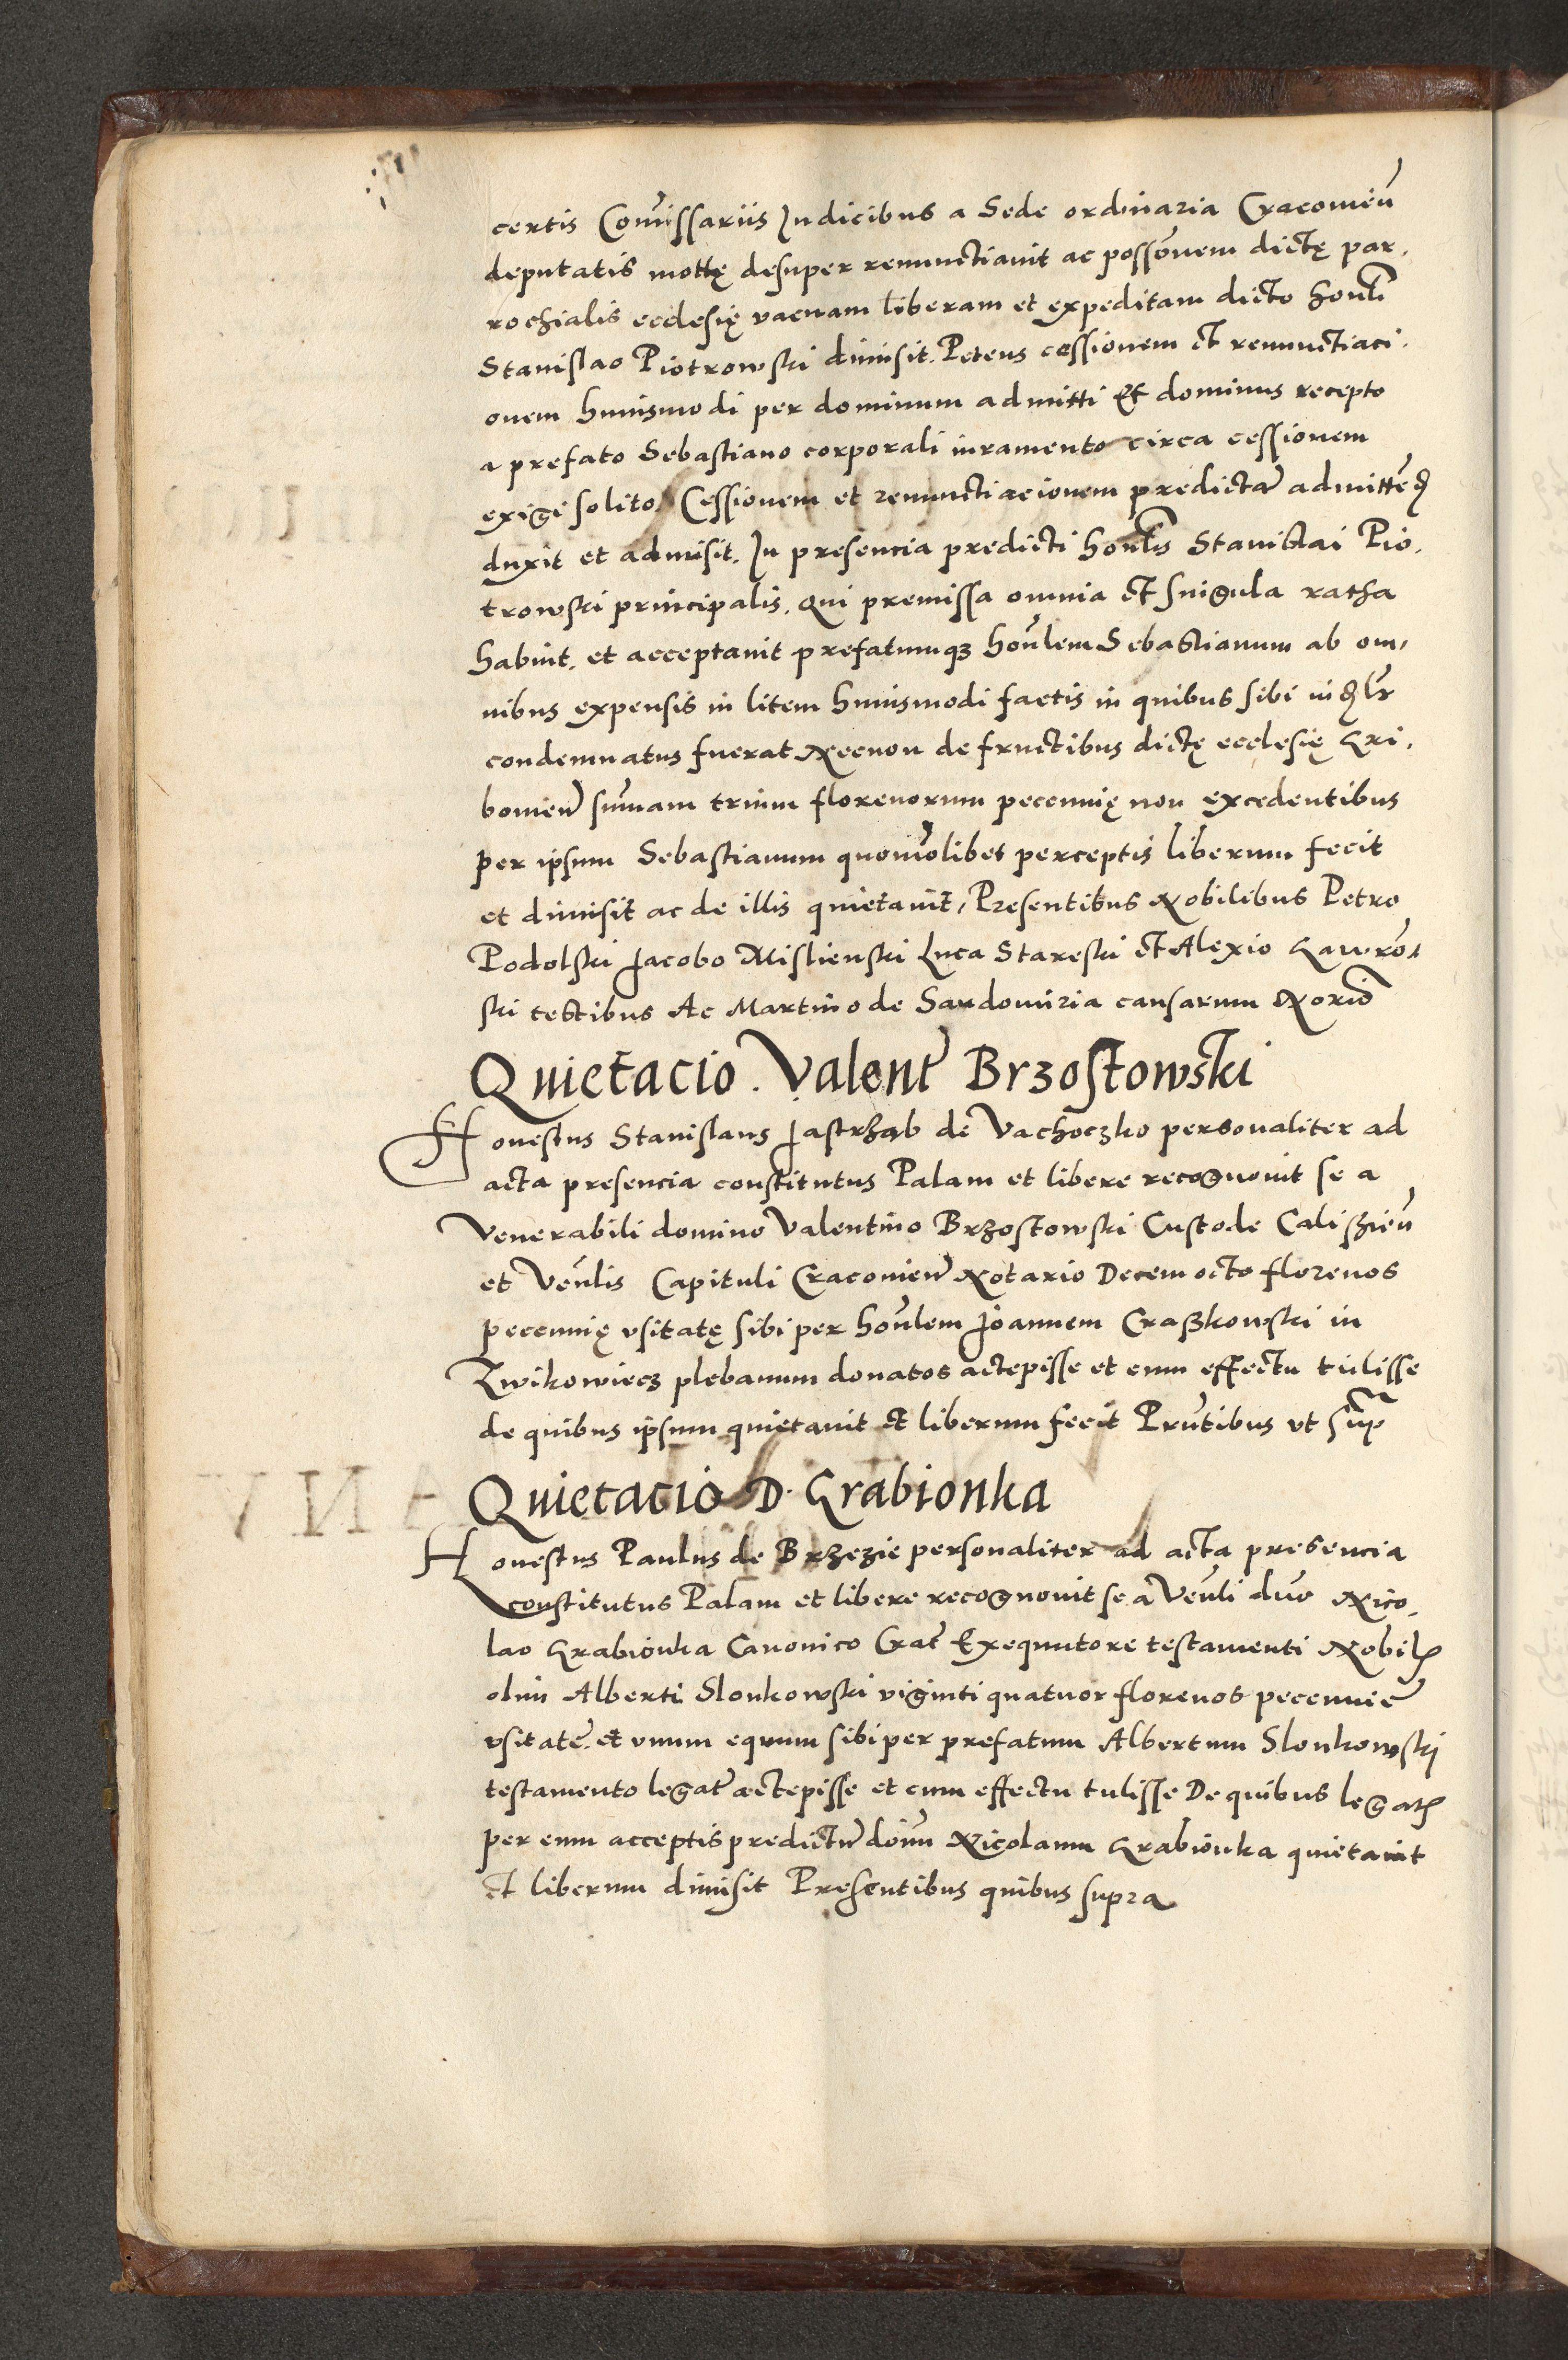 certis Com̃issariis Judicibus a Sede ordinaria Cracovień
deputatis mottę desuper renunctiavit ac possõnem dictę par.
rochialis ecclesię vacuam liberam et expeditam dicto honlĩ
Stanislao Piotrowski dimisit. Petens cessionem et renunctiaci.
onem huiusmodi per dominum admitti Et dominus recepto
a prefato Sebastiano corporali iuramento circa cessionem
exigi solito. Cessionem et renunctiacionem predictã admittẽd
duxit et admisit. In presencia predicti honlĩs Stanislai Pio.
trowski principalis. qui premissa omnia et singula ratha
habuit. et acceptavit prefatumqз honl̃em Sebastianum ab om,
nibus expensis in litem huiusmodi factis in quibus sibi
condemnatus fuerat Necnon de fructibus dictę ecclesię Gri.
bovień sum̃am trium florenorum pecunię non excedentibus
per ipsum Sebastianum quomõlibet perceptis liberum fecit
et dimisit ac de illis quietavit, Presentibus Nobilibus Petro
Podolski Jacobo Mislienski Luca Stareski et Alexio Gawroñ,
ski testibus Ac Martino de Sandomiria causarum Norio
Quietacio. Valent̃ Brzostowski
Honestus Stanislaus Jastrząb de Vachoczko personaliter ad
acta presencia constitutus Palam et libere recognovit se a
Venerabili domino Valentino Brzostowski Custode Caliszień
et Venl̃is Capituli Cracovień Notario Decem octo florenos
pecunię vsitatę sibi per honl̃em Joannem Craszkowski in
Zwikowiecz plebanum donatos accepisse et cum effectu tulisse
de quibus ipsum quietavit et liberum fecit Prñtibus vt sup̃
Quietacio D. Grabionka
Honestus Paulus de Brzezie personaliter ad acta presencia
constitutus Palam et libere recognovit se a Venl̃i dño Nico.
lao Grabionka Canonico Crac̃ Exequutore testamenti Nobil
olim Alberti Slonkowski viginti quatuor florenos pecunie
vsitate. et vnum equum sibi per prefatum Albertum Slonkowskj
testamento legat̃ accepisse et cum effectu tulisse De quibus legat
per eum acceptis predictũ doñm Nicolaum Grabionka quietavit
et liberum dimisit Presentibus quibus supra